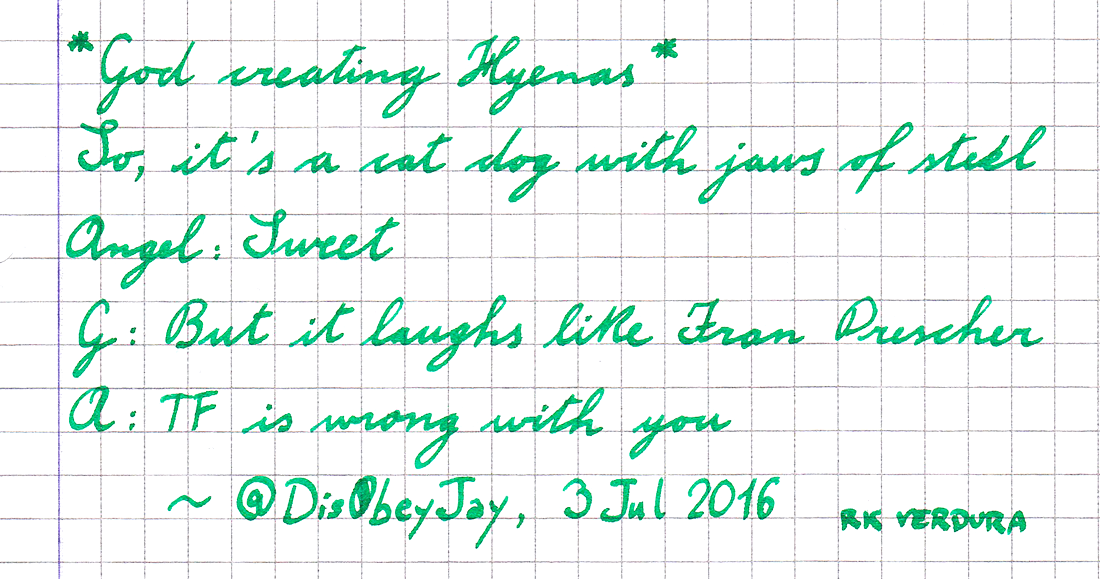 *God creating Hyenas*
So, it's a cat dog with jaws of steel
Angel: Sweet
G: But it laughs like Fran Drescher
A: TF is wrong with you
~ @DisObeyJay, 3 Jul 2016
RK VERDURA